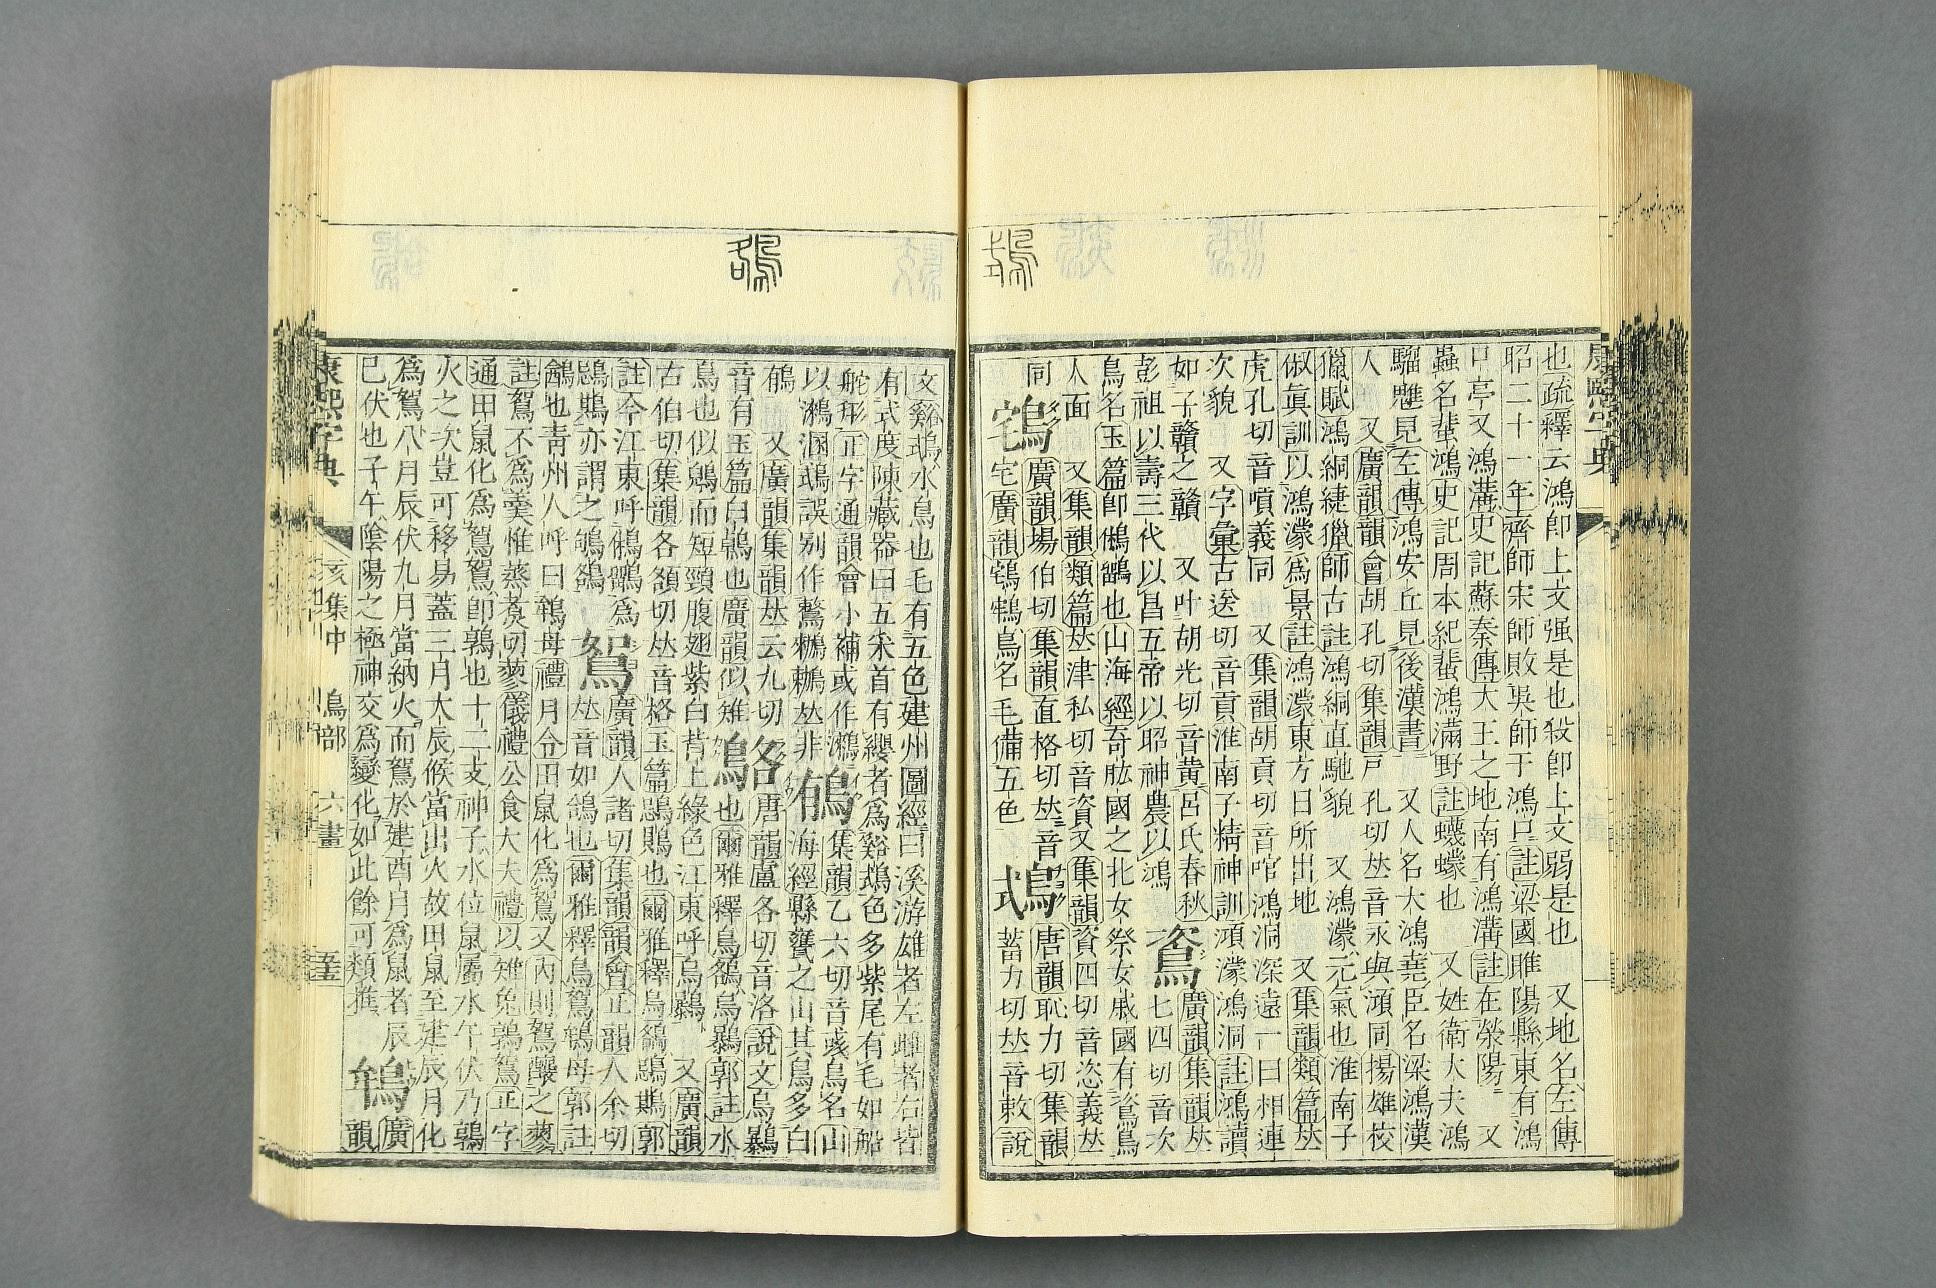 也疏釋云鴻卽上文强是也殺卽上文弱是也 又地名左傳
昭二十一年齊師宋師敗吳師于鴻口註梁國睢陽縣東有鴻
口亭又鴻溝史記蘇秦傳大王之地南有鴻溝註在滎陽 又
蟲名蜚鴻史記周本紀蜚鴻滿野註蠛蠓也 又姓衛大夫鴻
駵魋見左傳鴻安丘見後漢書 又人名大鴻堯臣名梁鴻漢
人 又廣韻韻會胡孔切集韻戸孔切𠀤音汞與澒同揚雄校
獵賦鴻絧緁獵師古註鴻絧直馳貌 又鴻濛元氣也淮南子
俶眞訓以鴻濛爲景註鴻濛東方日所出地 又集韻類篇𠀤
虎孔切音嗊義同 又集韻胡貢切音哄鴻洞深遠一曰相連
次貌 又字彙古送切音貢淮南子精神訓澒濛鴻洞註鴻讀
如子贛之贛 又叶胡光切音黃呂氏春秋
彭祖以壽三代以昌五帝以昭神農以鴻
䳐 廣韻集韻𠀤
七四切音次
鳥名玉篇卽鵂鶹也山海經奇肱國之北女祭女戚國有䳐鳥
人面 又集韻類篇𠀤津私切音資又集韻資四切音恣義𠀤
同 廣韻場伯切集韻直格切𠀤音
宅廣韻鳥名毛備五色
唐韻恥力切集韻
蓄力切𠀤音敕說
文谿水鳥也毛有五色建州圖經曰溪游雄者左雌者右皆
有式度陳藏器曰五采首有纓者爲谿色多紫尾有毛如船
舵形正字通韻會小補或作
以誤別作𠀤非
集韻乙六切音彧鳥名山
海經縣甕之山其鳥多白
鵗 又廣韻集韻𠀤云九切
音有玉篇白鵫也廣韻似雉
鵅 唐韻盧各切音洛說文烏鸔
也爾雅釋鳥鵅烏鸔郭註水
鳥也似鶂而短頸腹翅紫白背上綠色江東呼烏鸔 又廣韻
古伯切集韻各頟切𠀤音格玉篇鵋䳢也爾雅釋鳥鵅鵋䳢郭
註今江東呼鵂鶹爲
鵋䳢亦謂之鴝鵅
鴽 廣韻人諸切集韻韻會正韻人余切
𠀤音如鴿也爾雅釋鳥鴽鴾母郭註
鵪也靑州人呼曰鴾母禮月令田鼠化爲鴽又內則鴽釀之蓼
註鴽不爲羹惟蒸煑切蓼儀禮公食大夫禮以雉兔鶉鴽正字
通田鼠化爲鴽鴽卽鶉也十二支神子水位鼠屬水午伏乃鶉
火之次豈可移易蓋三月大辰候當出火故田鼠至建辰月化
爲鴽八月辰伏九月當納火而鴽於建酉月爲鼠者辰
巳伏也子午陰陽之極神交爲變化如此餘可類推
鴾 廣
韻
康熙字典
亥集中 鳥部 六畫
五